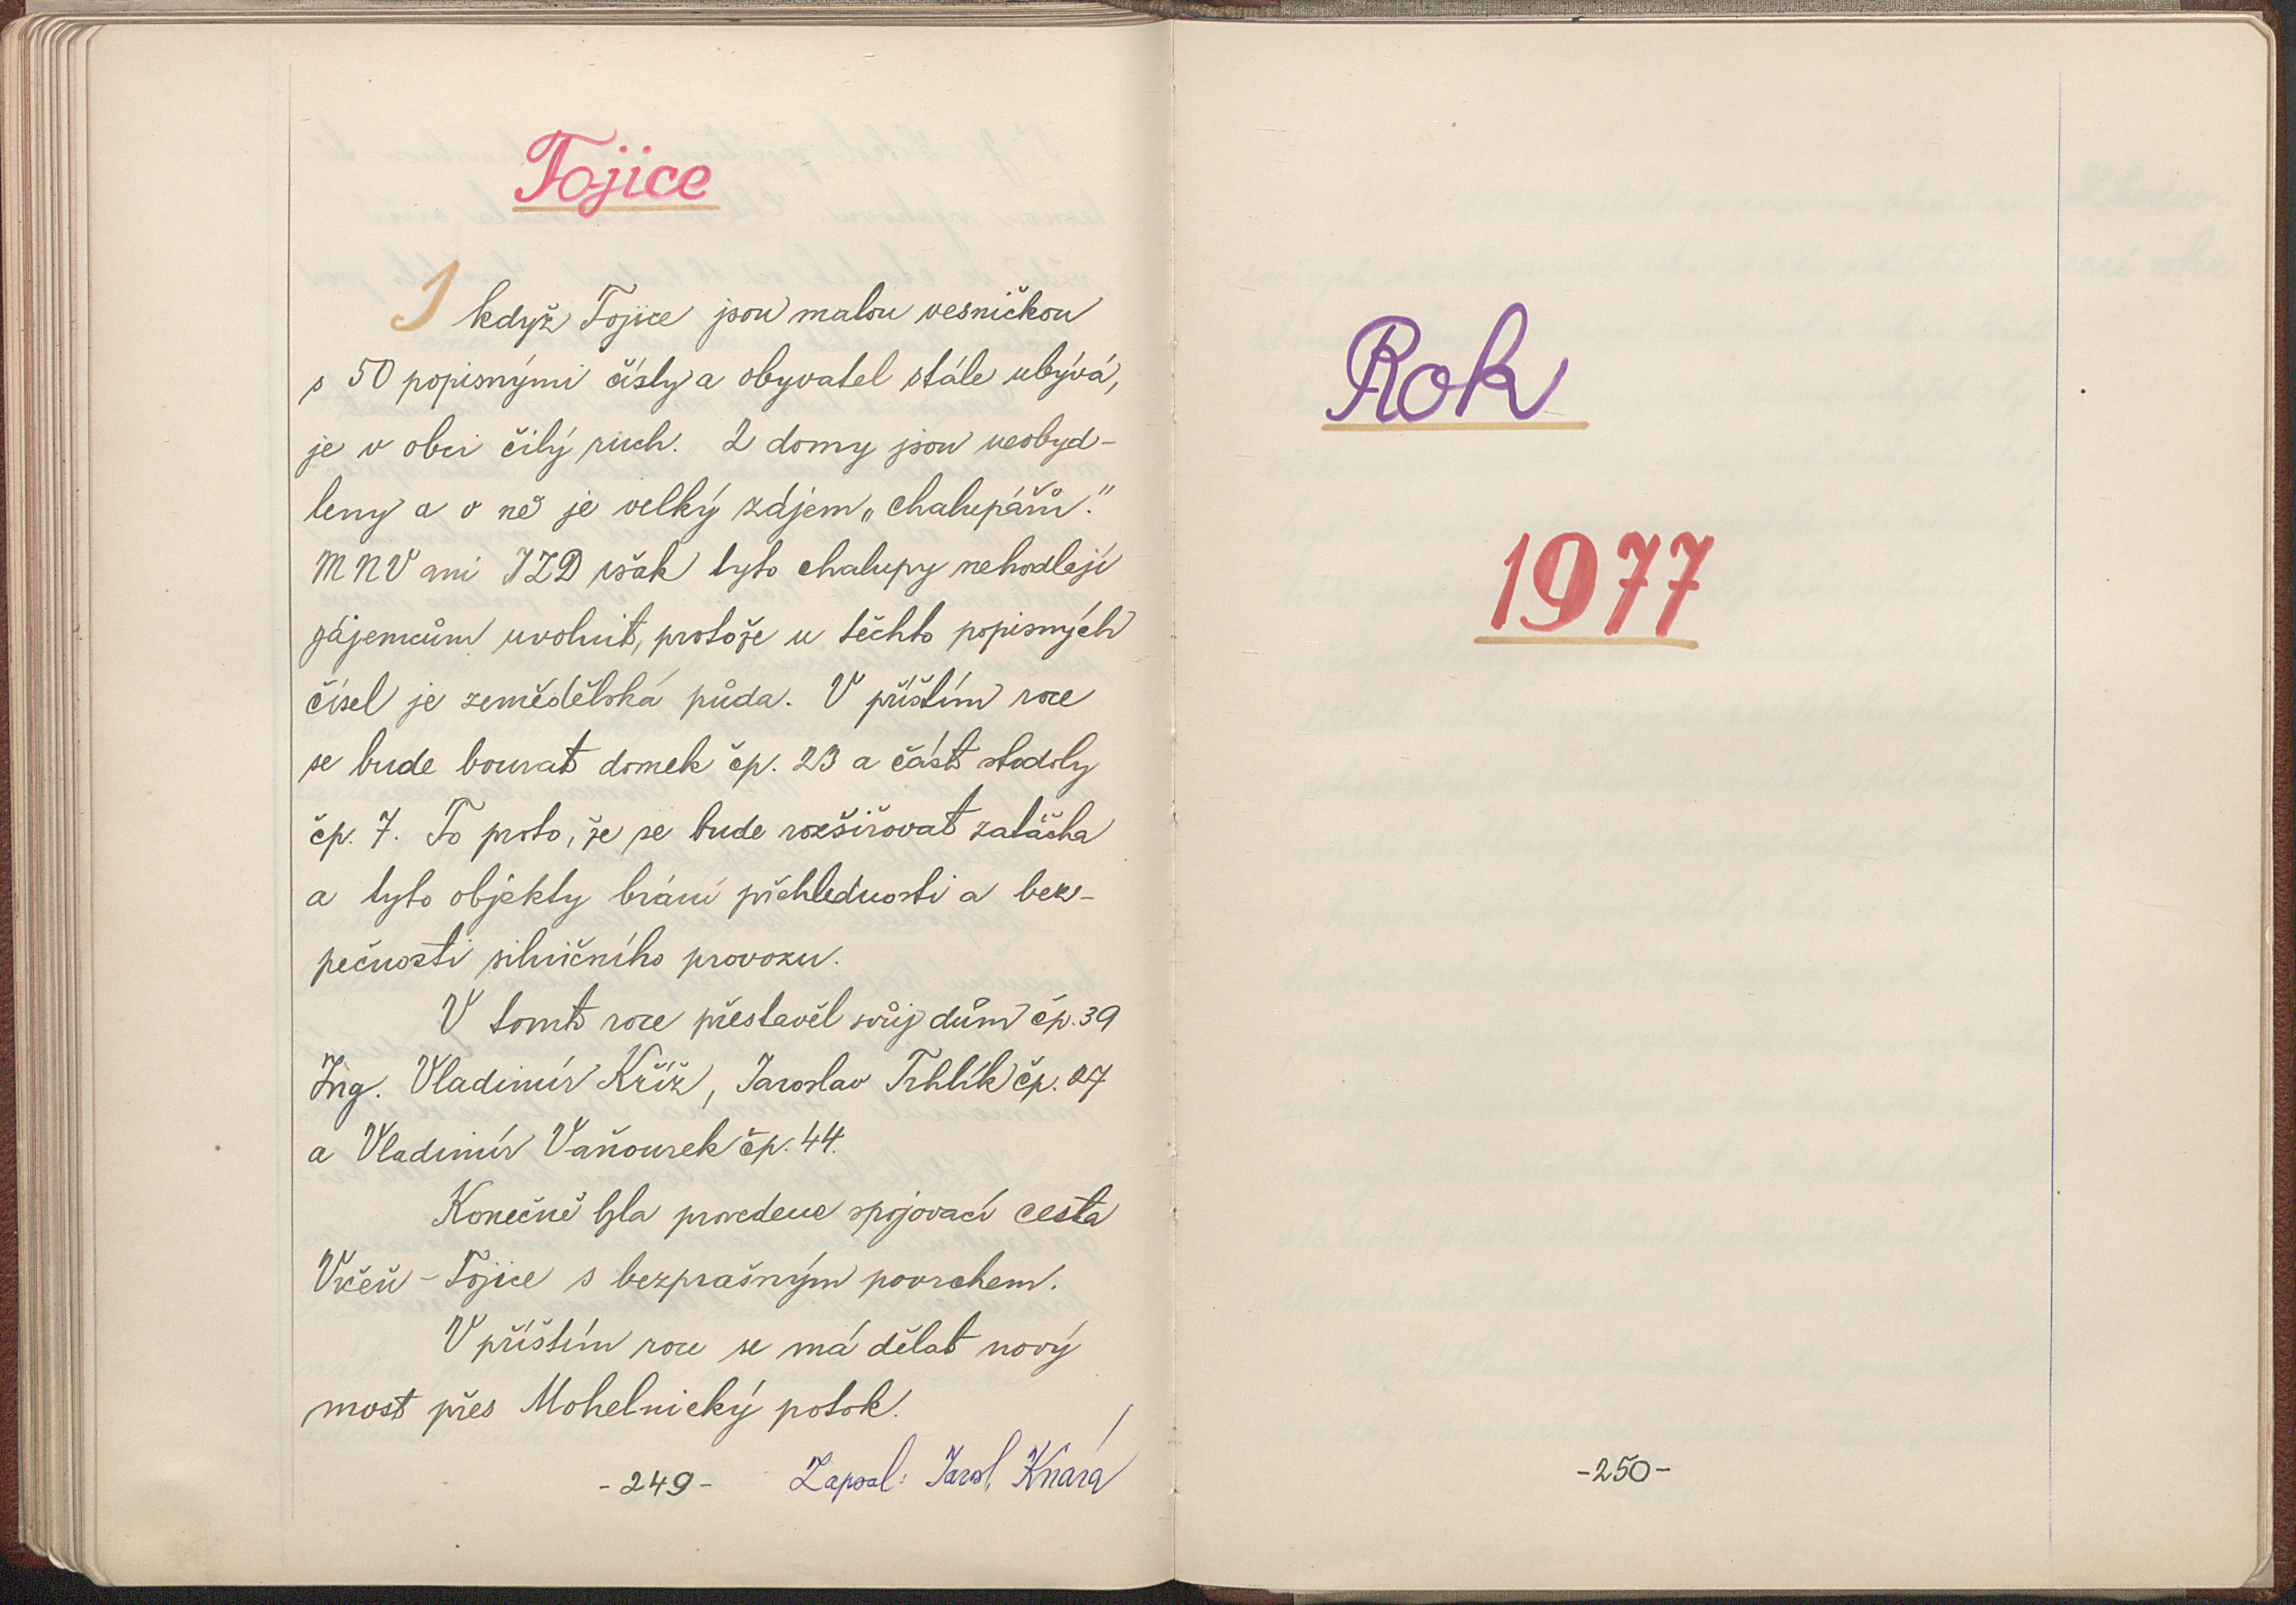 Tojice
I když Tojice jsou malou vesničkou
s 50 popisnými čísly a obyvatel stále ubývá,
je v obci čilý ruch. 2 domy jsou neobyd-
leny a o ně je velký zájem „chalupářů."
MNV ani JZD však tyto chalupy nehodlají
zájemcům uvolnit, protože u těchto popisných
čísel je zemědělská půda. V příštím roce
se bude bourat domek čp. 23 a část stodoly
čp. 7. To proto, že se bude rozšiřovat zatáčka
a tyto objekty brání přehlednosti a bez-
pečnosti silničního provozu.
V tomto roce přestavěl svůj dům čp. 39
Ing. Vladimír Kříž, Jaroslav Trhlík čp. 27
a Vladimír Vaňourek čp. 44.
Konečně byla provedena spojovací cesta
Vrčeň - Tojice s bezprašným povrchem.
V příštím roce se má dělat nový
most přes Mohelnický potok.
-249- Zapsal: Jarosl. Knára
Rok
1977
-250-